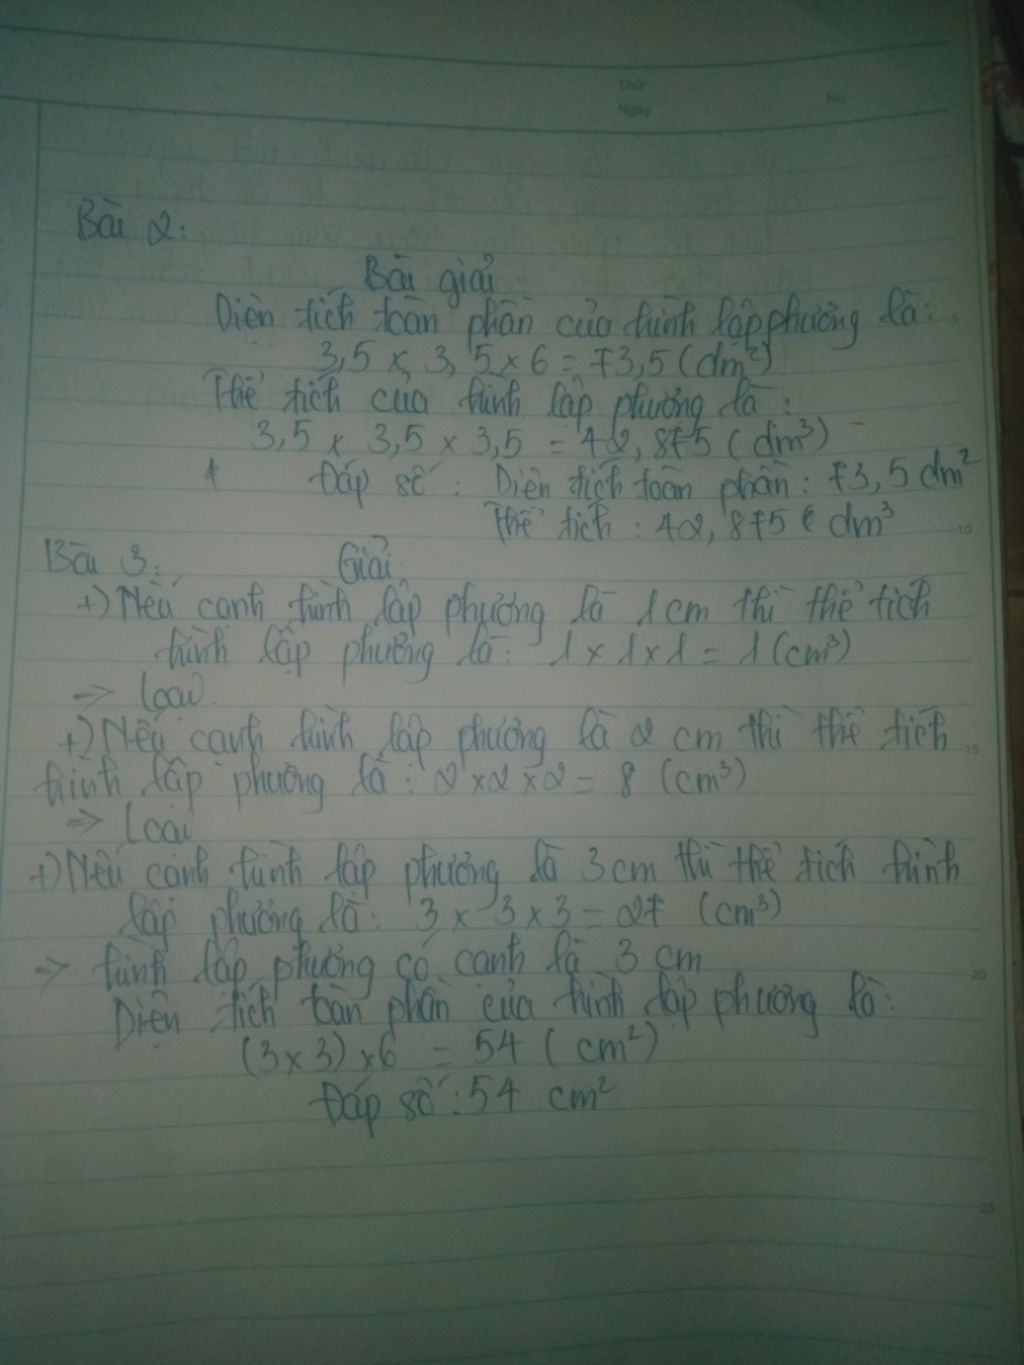 Thứ
Ngày
No
Bài 2:
Bài giải
Diện tích toàn phần của hình lập phương là:
3,5 x 3,5 x 6 = 73,5 (dm²)
Thể tích của hình lập phương là:
3,5 x 3,5 x 3,5 = 42,875 (dm³)
Đáp số: Diện tích toàn phần: 73,5 dm²
Thể tích: 42,875 dm³
10
Bài 3: Giải
+) Nếu cạnh hình lập phương là 1 cm thì thể tích
hình lập phương là: 1 x 1 x 1 = 1 (cm³)
=> Loại
+) Nếu cạnh hình lập phương là 2 cm thì thể tích
15
hình lập phương là: 2 x 2 x 2 = 8 (cm³)
=> Loại
+) Nếu cạnh hình lập phương là 3 cm thì thể tích hình
lập phương là: 3 x 3 x 3 = 27 (cm³)
=> hình lập phương có cạnh là 3 cm
20
Diện tích toàn phần của hình lập phương là:
(3 x 3) x 6 = 54 (cm²)
Đáp số: 54 cm²
25